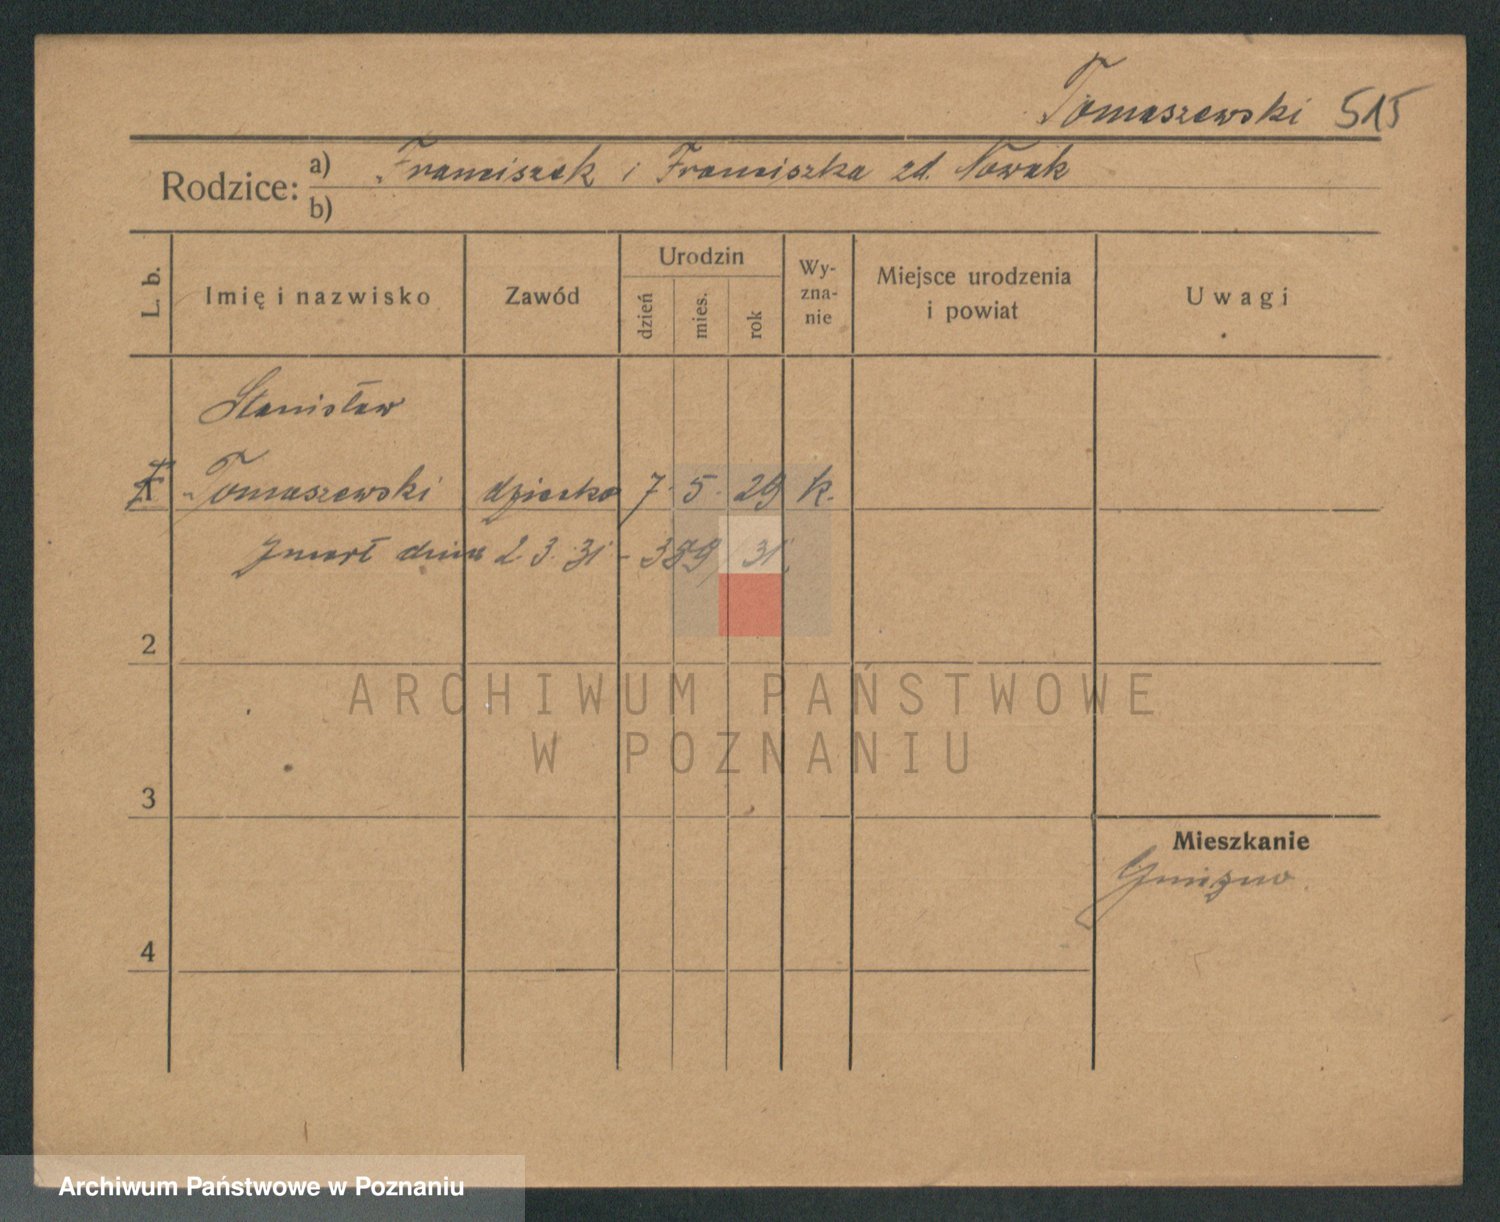 Tomaszewski 515
Rodzice: a) Franciszek i Franciszka zd. Nowak
b)
L. b.
Imię i nazwisko
Zawód
Urodzin
dzień
mies.
rok
Wy-
zna-
nie
Miejsce urodzenia
i powiat
Uwagi
Stanisław
Tomaszewski dziecko 7. 5. 29 k.
Zmarł dnia 2. 3. 31 - 389/31.
2
ARCHIWUM PAŃSTWOWE
W POZNANIU
3
Mieszkanie
Gniezno.
4
Archiwum Państwowe w Poznaniu